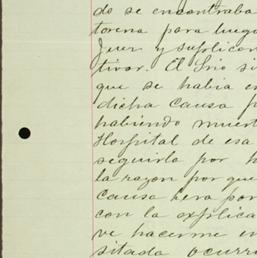 do se encontraba
torena para luego
Juez y suplicon
tivar. El Srio si
que se habia en
dicha causa p
habiendo muert
Hospital de esa
seguirla por h
la razon por que
causa hera por
con la explica
ve hacerme en
sitada ocurri